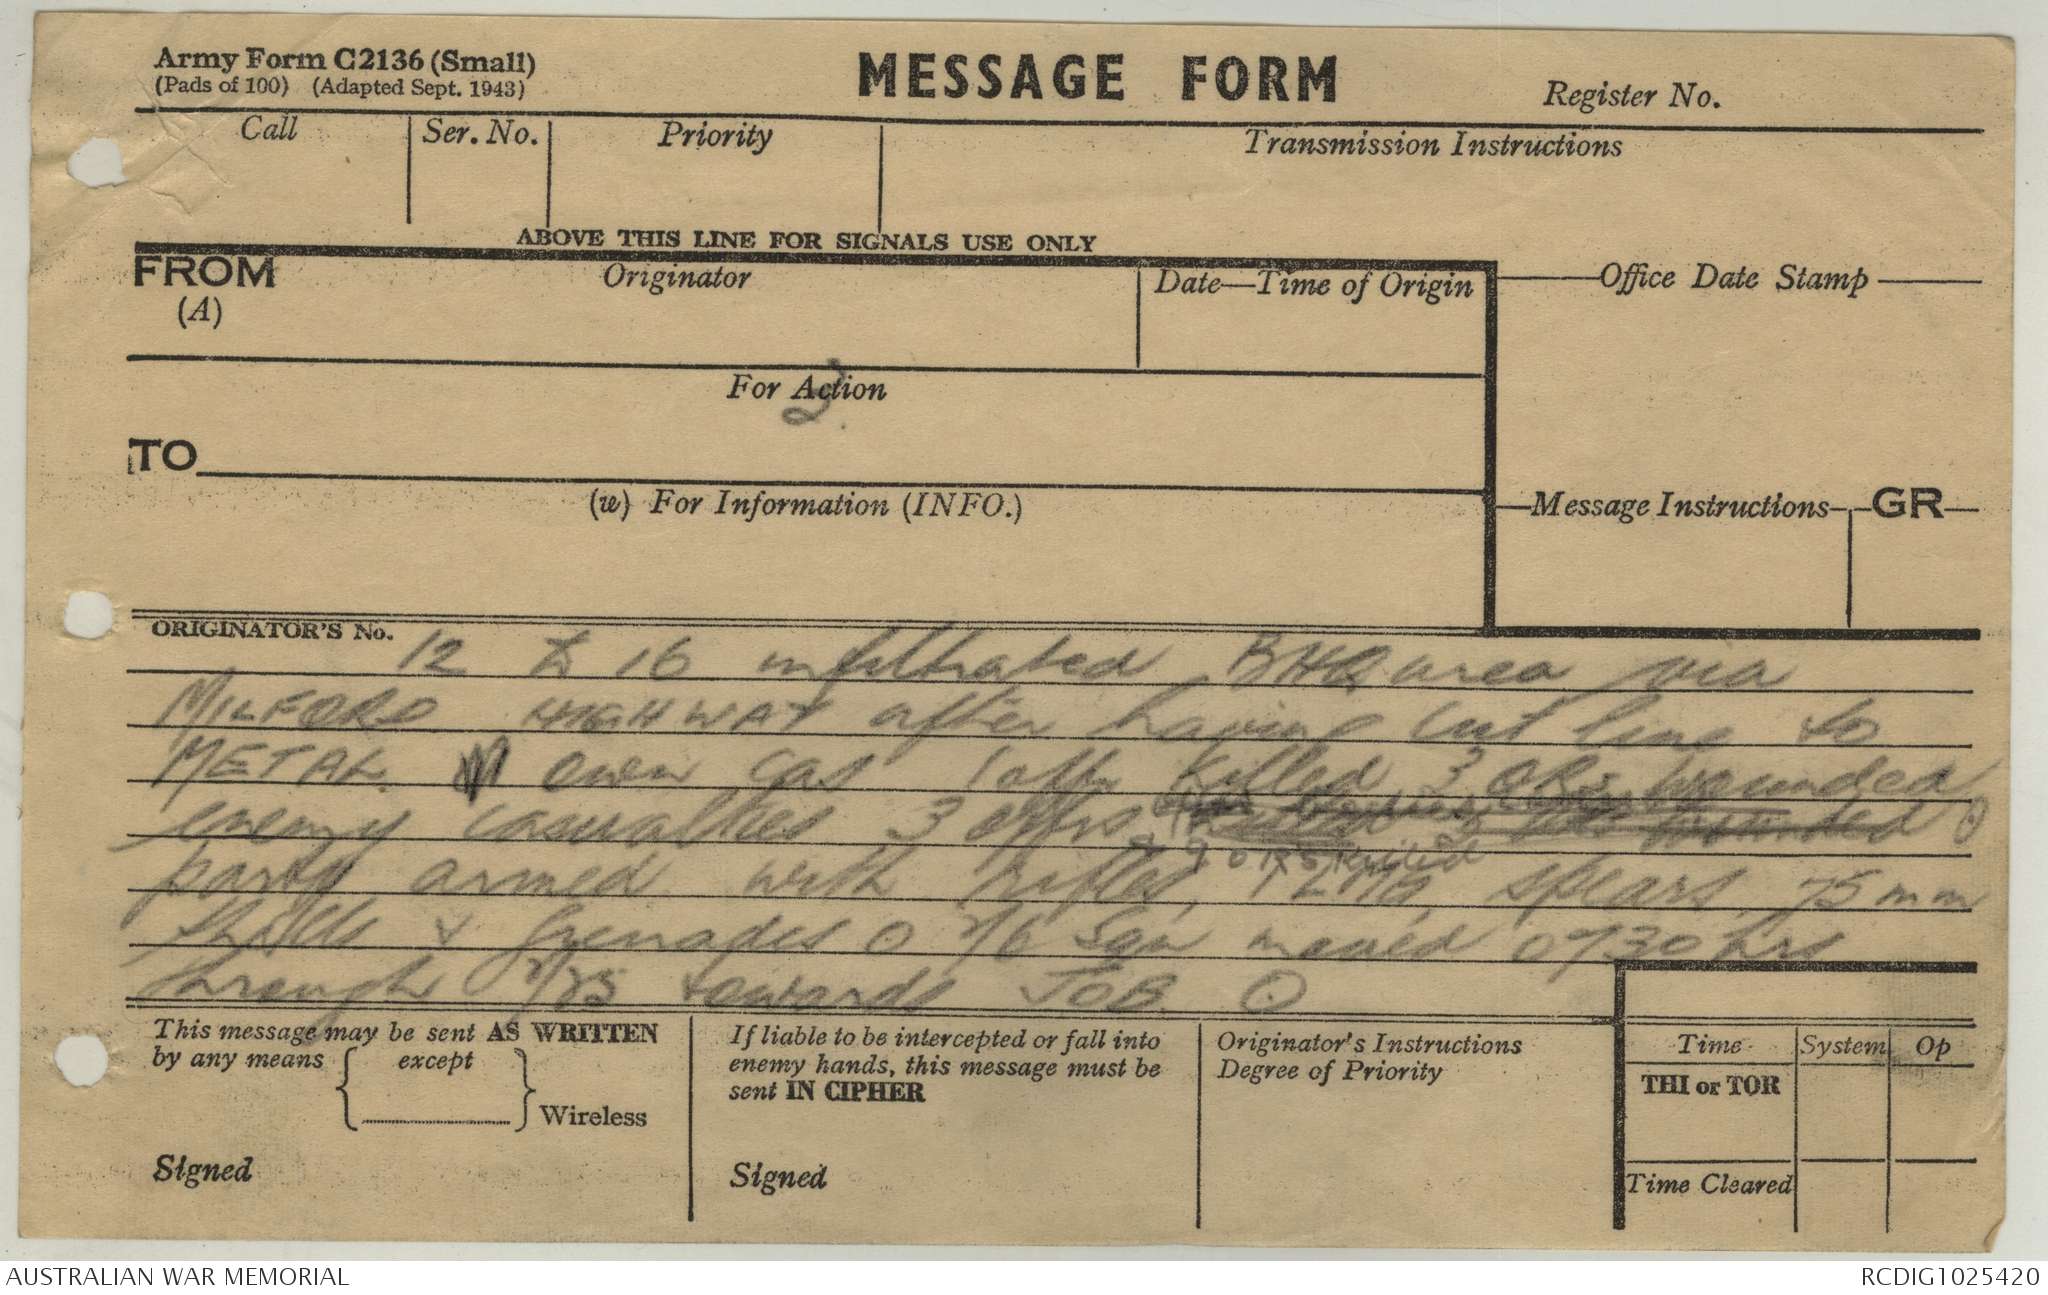 Army Form C2136 (Small)
(Pads of 100) (Adapted Sept. 1943)
MESSAGE FORM
Register No.
Call
Ser. No.
Priority
Transmission Instructions
ABOVE THIS LINE FOR SIGNALS USE ONLY
FROM
(A)
Originator
Date—Time of Origin
Office Date Stamp
For Action
2
TO
(w) For Information (INFO.)
Message Instructions
GR
ORIGINATOR'S No.
12 to 16 infiltrated BHQ area via
MILFORD HIGHWAY after having cut line to
METAL. own cas 1 offr killed 3 ORs wounded
enemy casualties 3 offrs
& 9 ORs killed
party armed with rifles, spears, 75 mm
shells & grenades O 2/6 Sqn moved 0730 hrs
through 2/23 towards JOB. O
This message may be sent AS WRITTEN
by any means
except
Wireless
Signed
If liable to be intercepted or fall into
enemy hands, this message must be
sent IN CIPHER
Signed
Originator's Instructions
Degree of Priority
Time
System
Op
THI or TOR
Time Cleared
AUSTRALIAN WAR MEMORIAL
RCDIG1025420